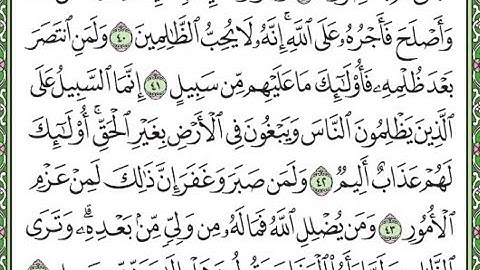 وَأَصْلَحَ فَأَجْرُهُۥ عَلَى ٱللَّهِ ۚ إِنَّهُۥ لَا يُحِبُّ ٱلظَّـٰلِمِينَ ٤٠ وَلَمَنِ ٱنتَصَرَ
بَعْدَ ظُلْمِهِۦ فَأُو۟لَـٰٓئِكَ مَا عَلَيْهِم مِّن سَبِيلٍ ٤١ إِنَّمَا ٱلسَّبِيلُ عَلَى
ٱلَّذِينَ يَظْلِمُونَ ٱلنَّاسَ وَيَبْغُونَ فِى ٱلْأَرْضِ بِغَيْرِ ٱلْحَقِّ ۚ أُو۟لَـٰٓئِكَ
لَهُمْ عَذَابٌ أَلِيمٌ ٤٢ وَلَمَن صَبَرَ وَغَفَرَ إِنَّ ذَٰلِكَ لَمِنْ عَزْمِ
ٱلْأُمُورِ ٤٣ وَمَن يُضْلِلِ ٱللَّهُ فَمَا لَهُۥ مِن وَلِىٍّ مِّنۢ بَعْدِهِۦ ۗ وَتَرَى